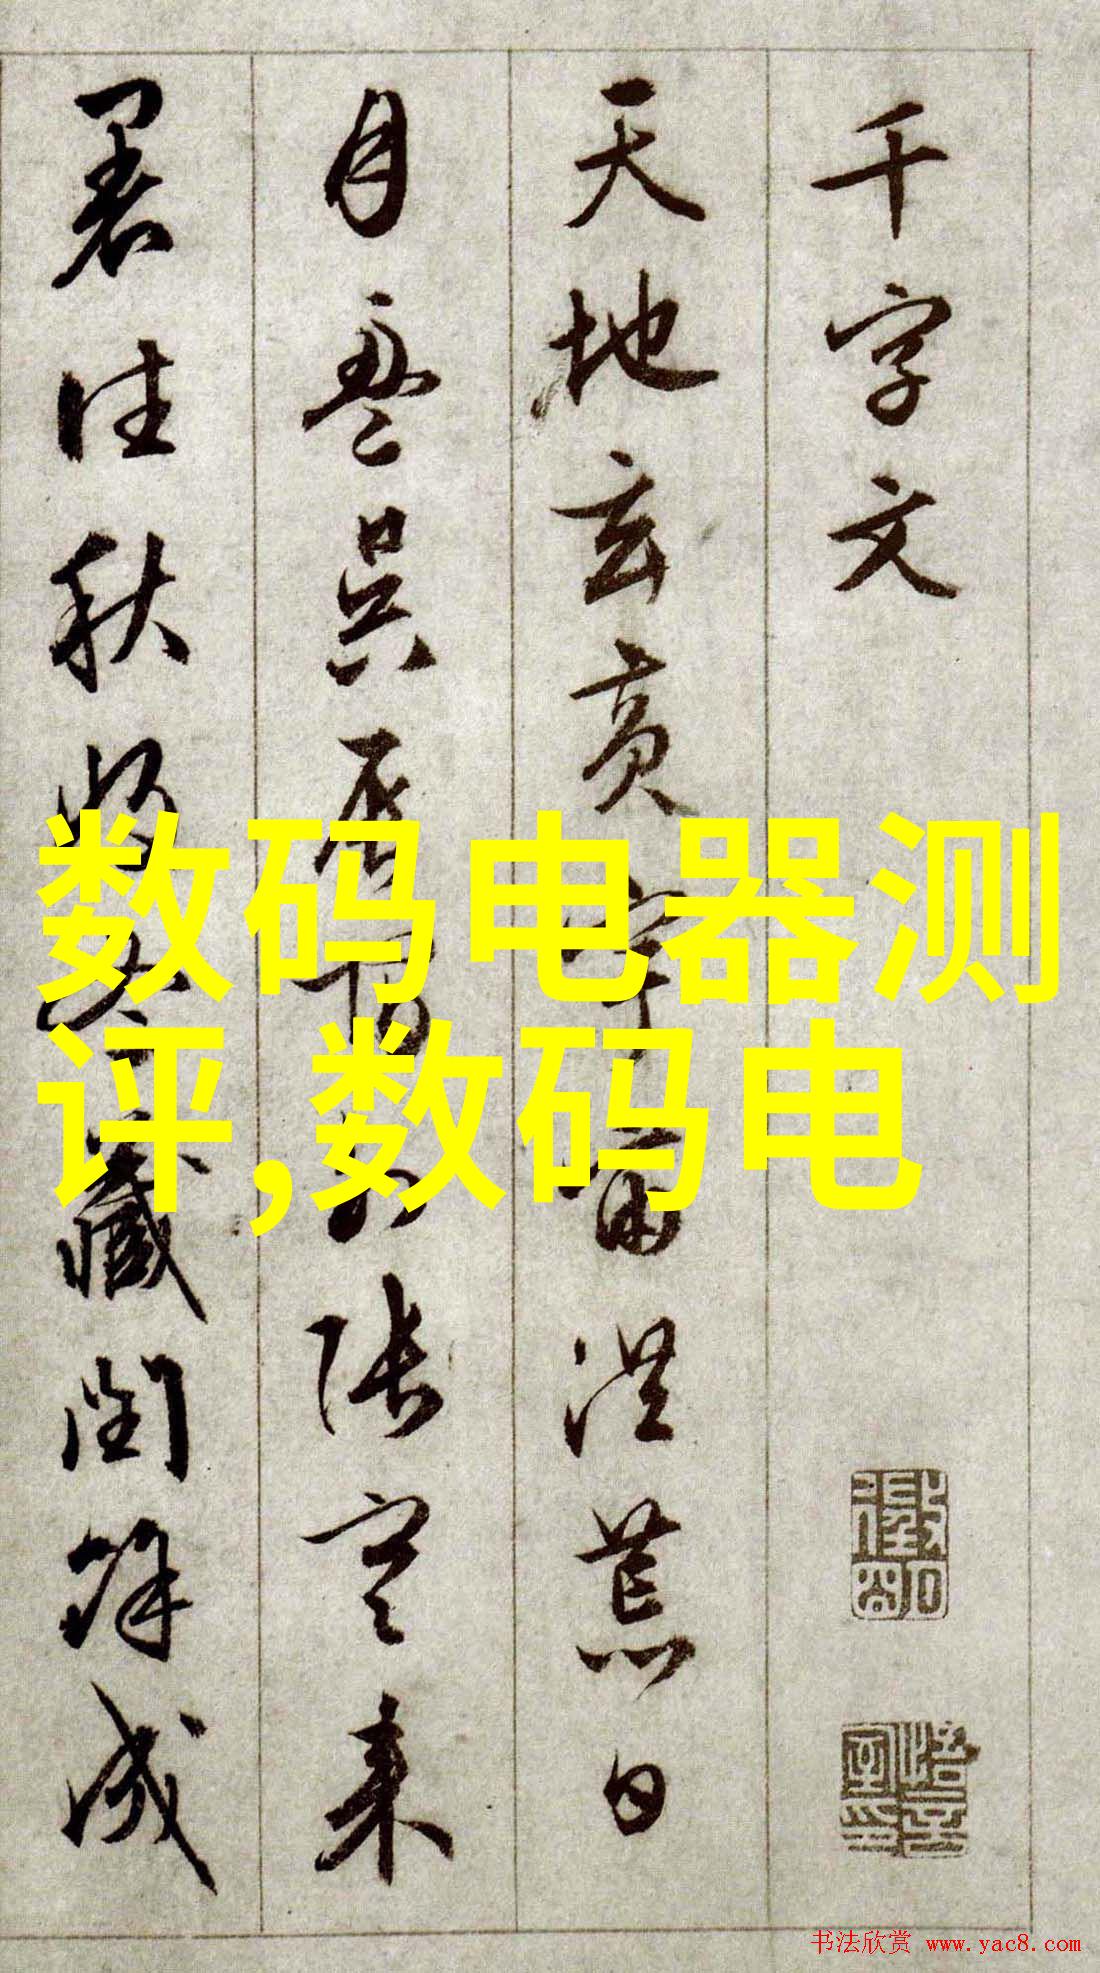 千字文
天地玄黃宇宙洪荒日
月盈昃辰宿列張寒来
暑往秋收冬藏閏餘成
数码电器测
评,数码电
书法欣赏 www.yac8.com